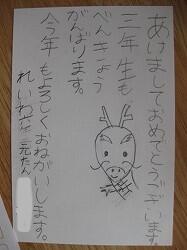 あけましておめでとうございます
三年生も
べんきょう
がんばります。
今年もよろしくおねがいします。
れいわ六年 元たん